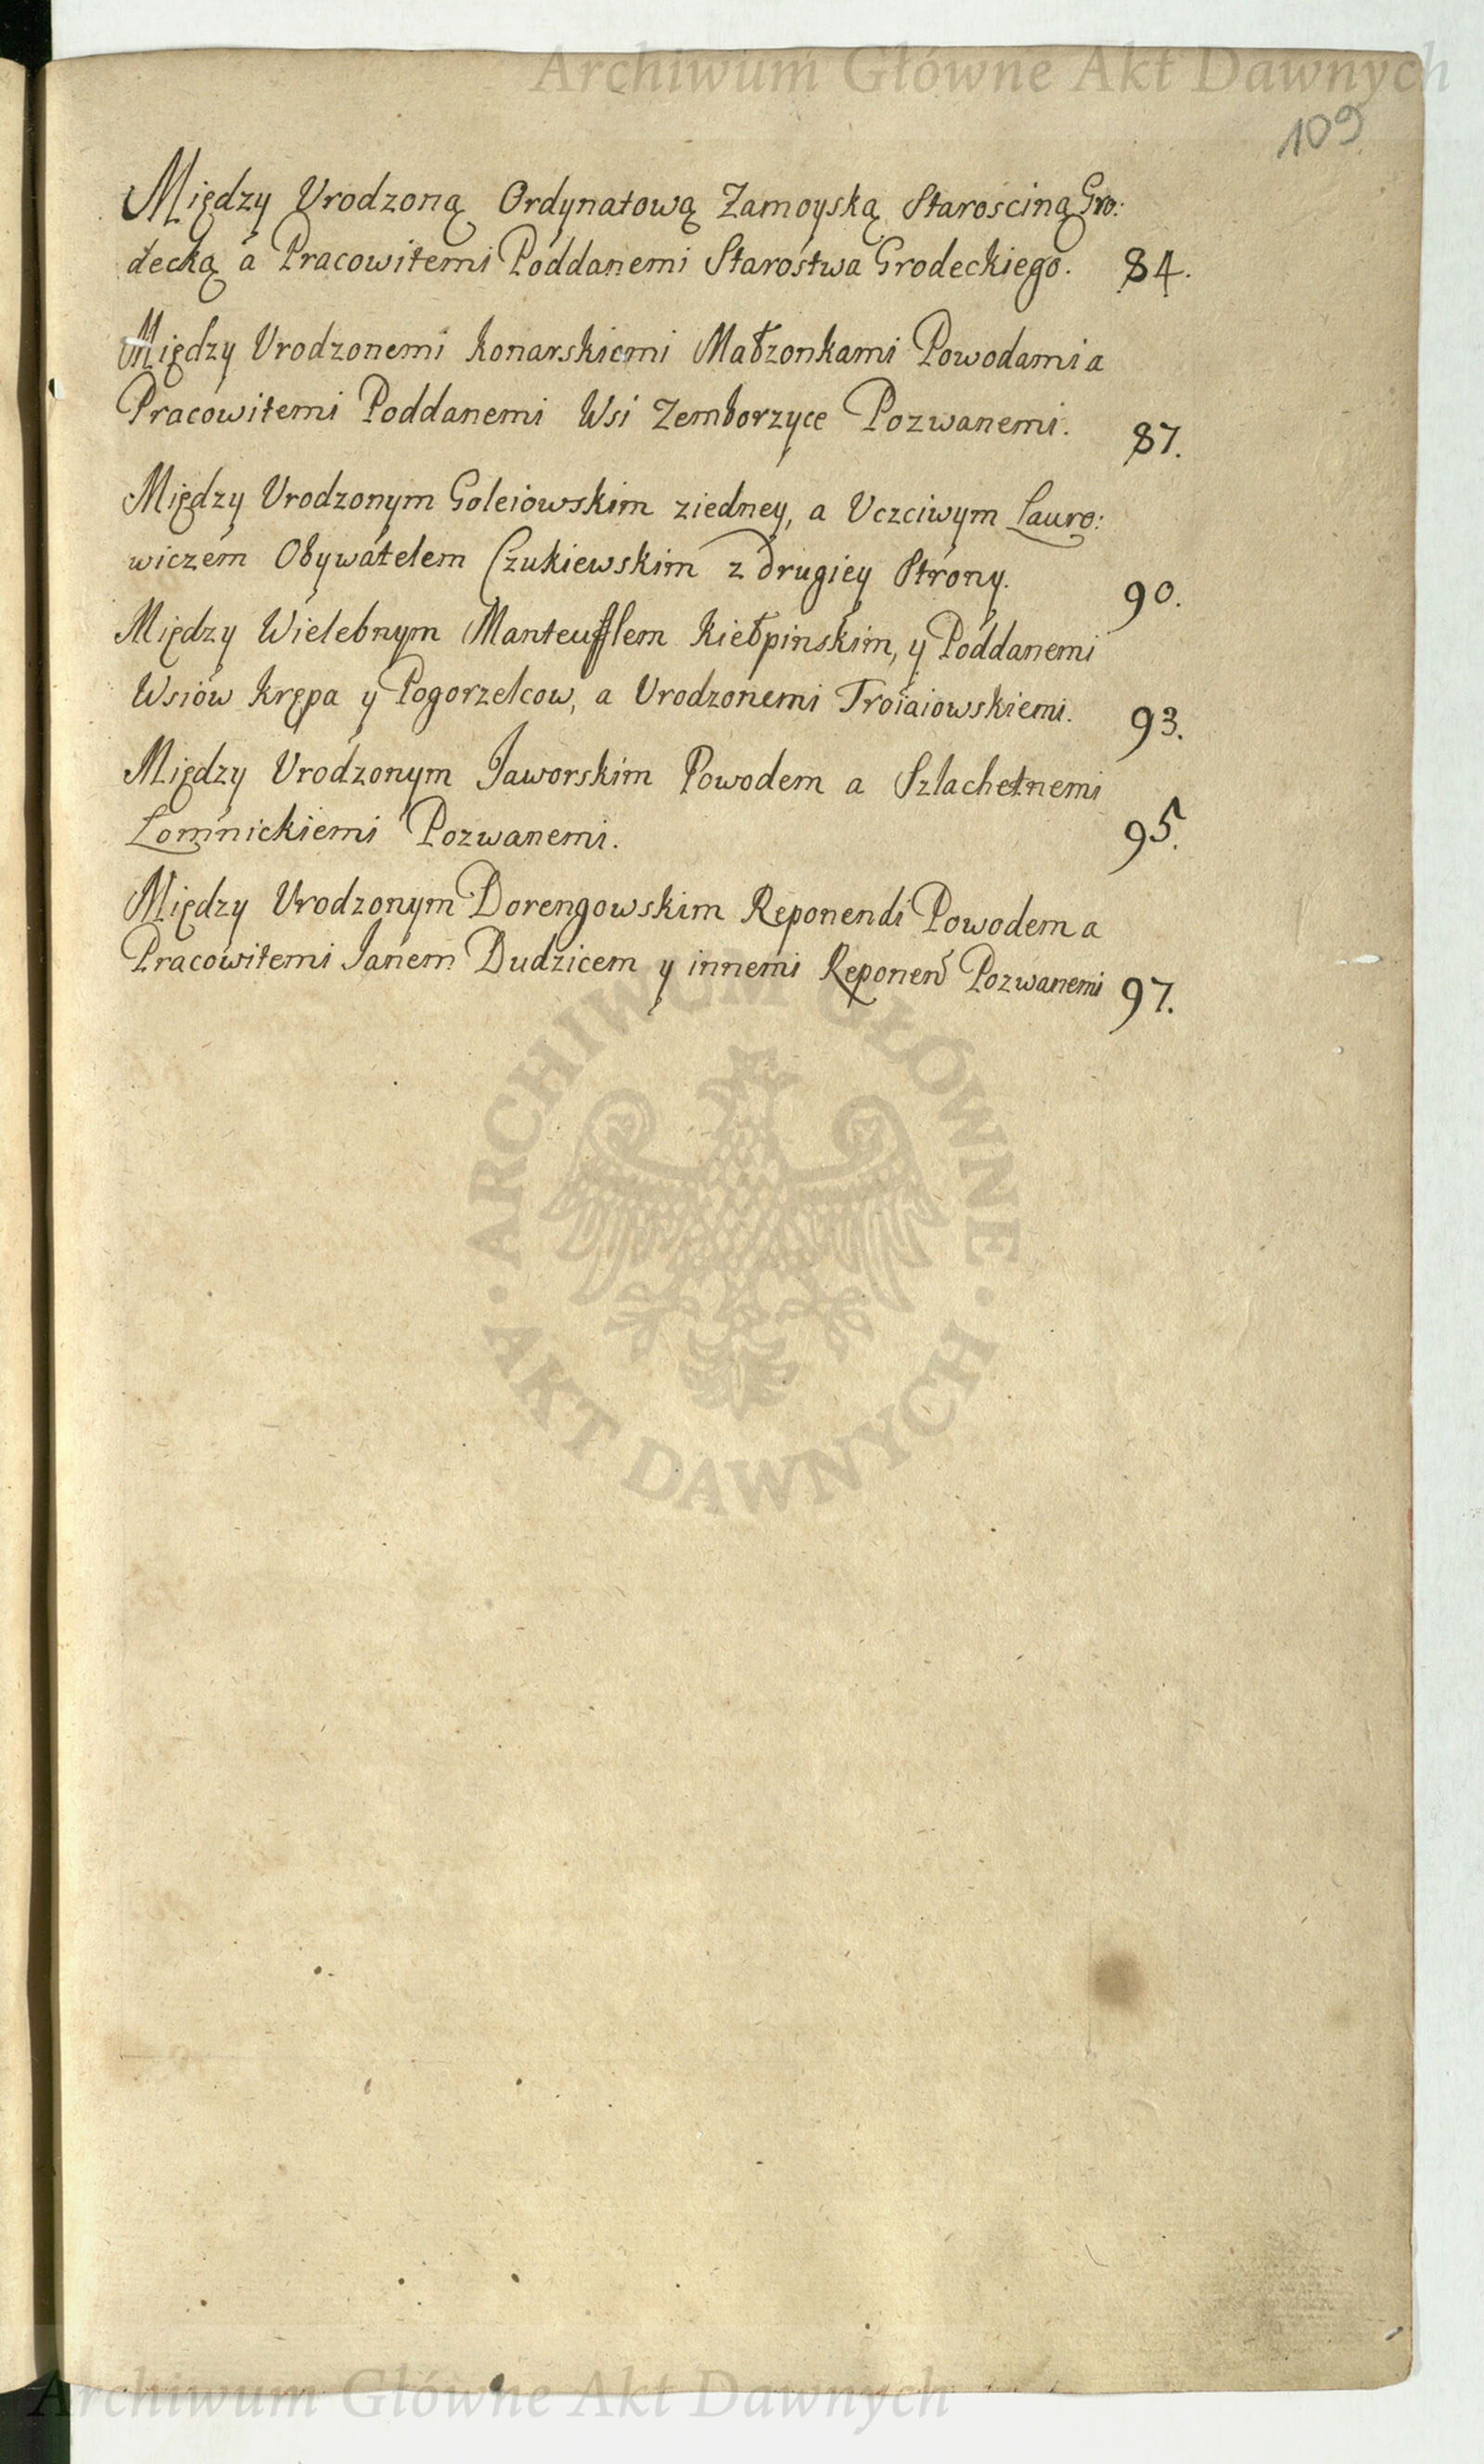 Archiwum Główne Akt Dawnych
109
Między Urodzoną Ordynatową Zamoyską Starosciną Gro:
decką a Pracowitemi Poddanemi Starostwa Grodeckiego. 84.
Między Urodzonemi Konarskiemi Małzonkami Powodami a
Pracowitemi Poddanemi Wsi Zemborzyce Pozwanemi. 87.
Między Urodzonym Goleiowskim ziedney, a Uczciwym Lauro:
wiczem Obywatelem Czukiewskim z drugiey Strony. 90.
Między Wielebnym Manteufflem Kiełpinskim, y Poddanemi
Wsiow Krępa y Pogorzelcow, a Urodzonemi Troiaiowskiemi. 93.
Między Urodzonym Jaworskim Powodem a Szlachetnemi
Lomnickiemi Pozwanemi. 95.
Między Urodzonym Dorengowskim Reponendi Powodem a
Pracowitemi Janem Dudzicem y innemi Reponen Pozwanemi 97.
ARCHIWUM GŁÓWNE
AKT DAWNYCH
Archiwum Główne Akt Dawnych